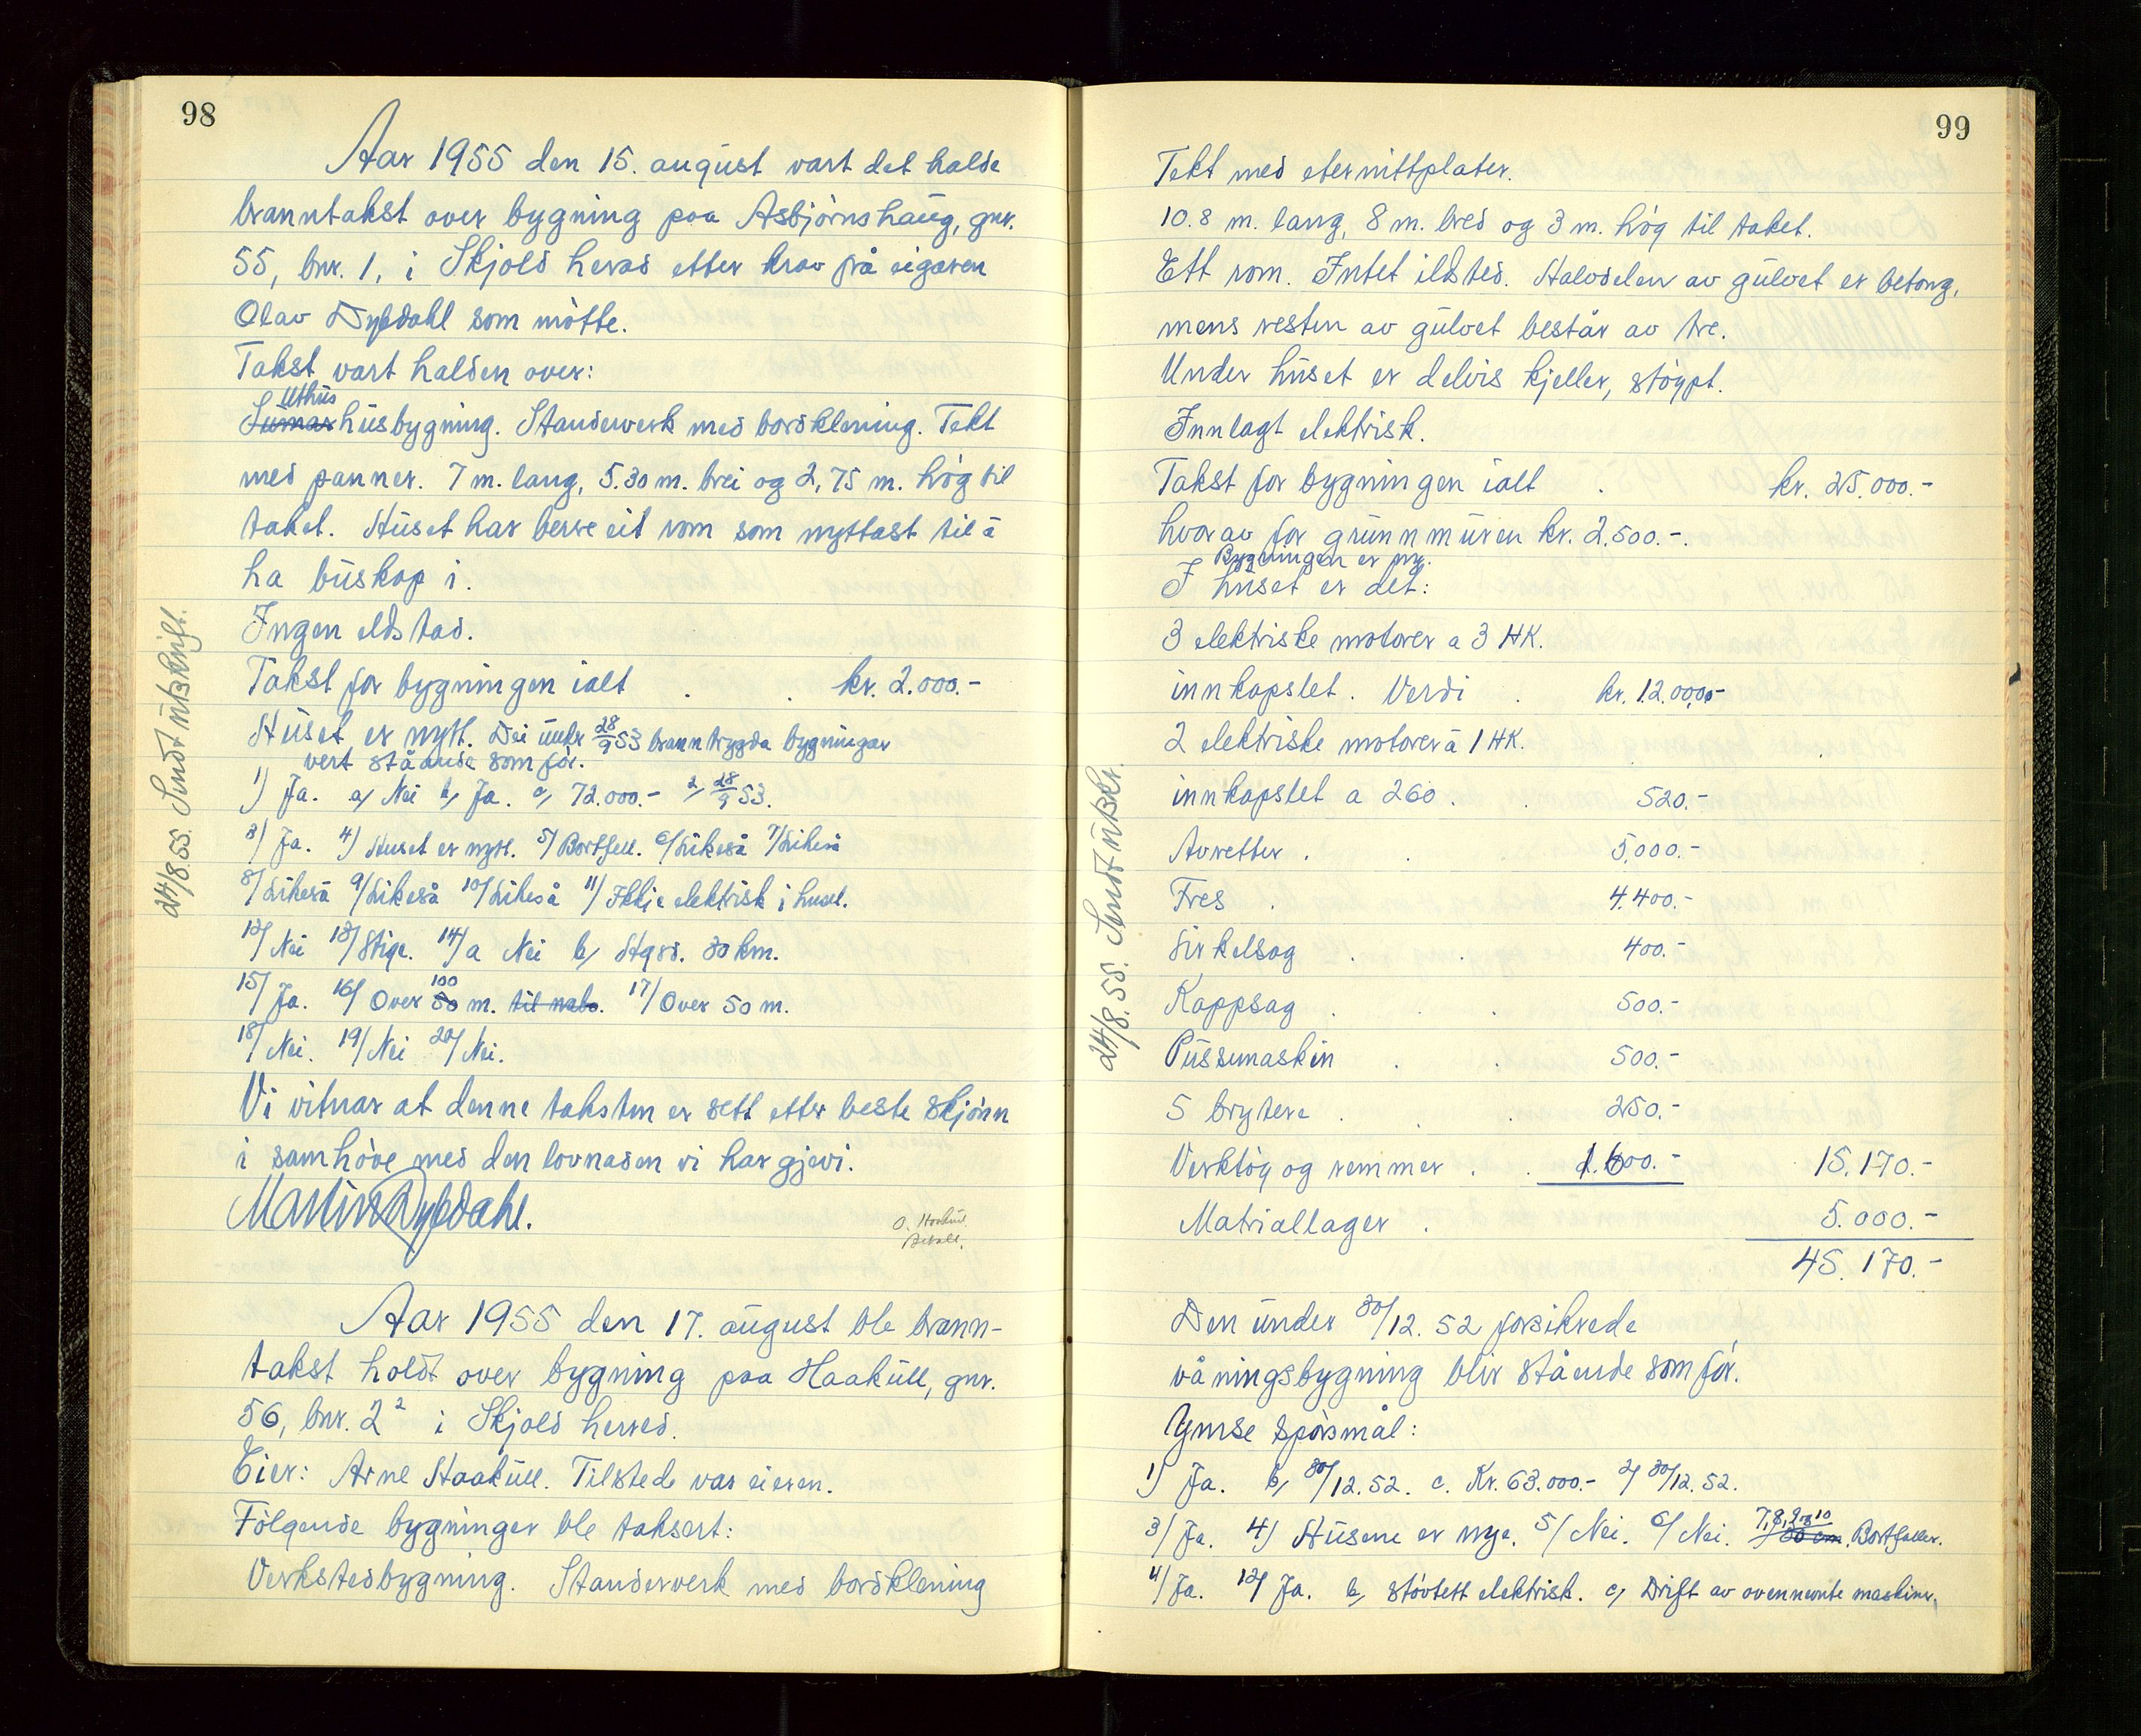 98
Aar 1955 den 15. august vart det halde
branntakst over bygning paa Asbjørnshaug, gnr.
55, bnr. 1, i Skjold herad etter krav frå eigaren
Olav Dybdahl som møtte.
Takst vart halden over:
Uthus
Sumarhusbygning. Standerverk med bordklening. Tekt
med panner. 7 m. lang, 5.30 m. brei og 2,75 m. høg til
taket. Huset har berre eit rom som nyttast til å
ha buskap i.
Ingen eldstad.
Takst for bygningen ialt . . kr. 2.000.-
Huset er nytt. Dei under 28/9 53 branntrygda bygningar
vert ståande som før.
1) Ja. a, Nei b, Ja. c, 72.000.- 2, 28/9 53.
3) Ja. 4) Huset er nytt. 5/ Bortfell. 6/ Likeså 7/ Likeså
8/ Likeså 9/ Likeså 10/ Likeså 11/ Ikkje elektrisk i huset.
12/ Nei 13/ Stige. 14/ a Nei b, Hgsd. 30 km.
100
15/ Ja. 16/ Over 50 m. til nabo. 17/ Over 50 m.
18/ Nei. 19/ Nei 20/ Nei.
Vi vitnar at denne taksten er sett etter beste skjønn
i samhøve med den lovnaden vi har gjevi.
Martin Dybdahl.
O. Haakull
24/8.55. Sendt utskrift.
Aar 1955 den 17. august ble brann-
takst holdt over bygning paa Haakull, gnr.
56, bnr. 2² i Skjold herred.
Eier: Arne Haakull. Tilstede var eieren.
Følgende bygninger ble taksert:
Verkstedbygning. Standerverk med bordklening
99
Tekt med eternittplater.
10.8 m. lang, 8 m. bred og 3 m. høg til taket.
Ett rom. Intet ildsted. Halvdelen av gulvet er betong,
mens resten av gulvet består av tre.
Under huset er delvis kjeller, støypt.
Innlagt elektrisk.
Takst for bygningen ialt . kr. 25.000.-
hvorav for grunnmuren kr. 2.500.-.
Bygningen er ny.
I huset er det:
3 elektriske motorer a 3 HK.
innkapslet. Verdi . kr. 12.000,-
2 elektriske motorer à 1 HK.
innkapslet a 260 . 520.-
Avretter . . . 5,000.-
Fres . 4.400.-
Sirkelsag . . 400.-
Kappsag . . . 500.-
Pussemaskin . . 500.-
5 brytere . . . 250.-
Verktøy og remmer . . 1.600.- 15.170.-
Matriallager . 5.000.-
45.170.-
24/8.55. Sendt utskr.
Den under 30/12.52 forsikrede
våningsbygning blir stående som før.
Ymse spørsmål:
1) Ja. b, 30/12.52. c. Kr. 63.000.- 2/ 30/12.52.
3/ Ja. 4) Husene er nye. 5/ Nei. 6/ Nei. 7,8,9 og 10 Bortfaller.
11/ Ja. 12/ Ja. b, støvtett elektrisk. c, Drift av ovennevnte maskiner.